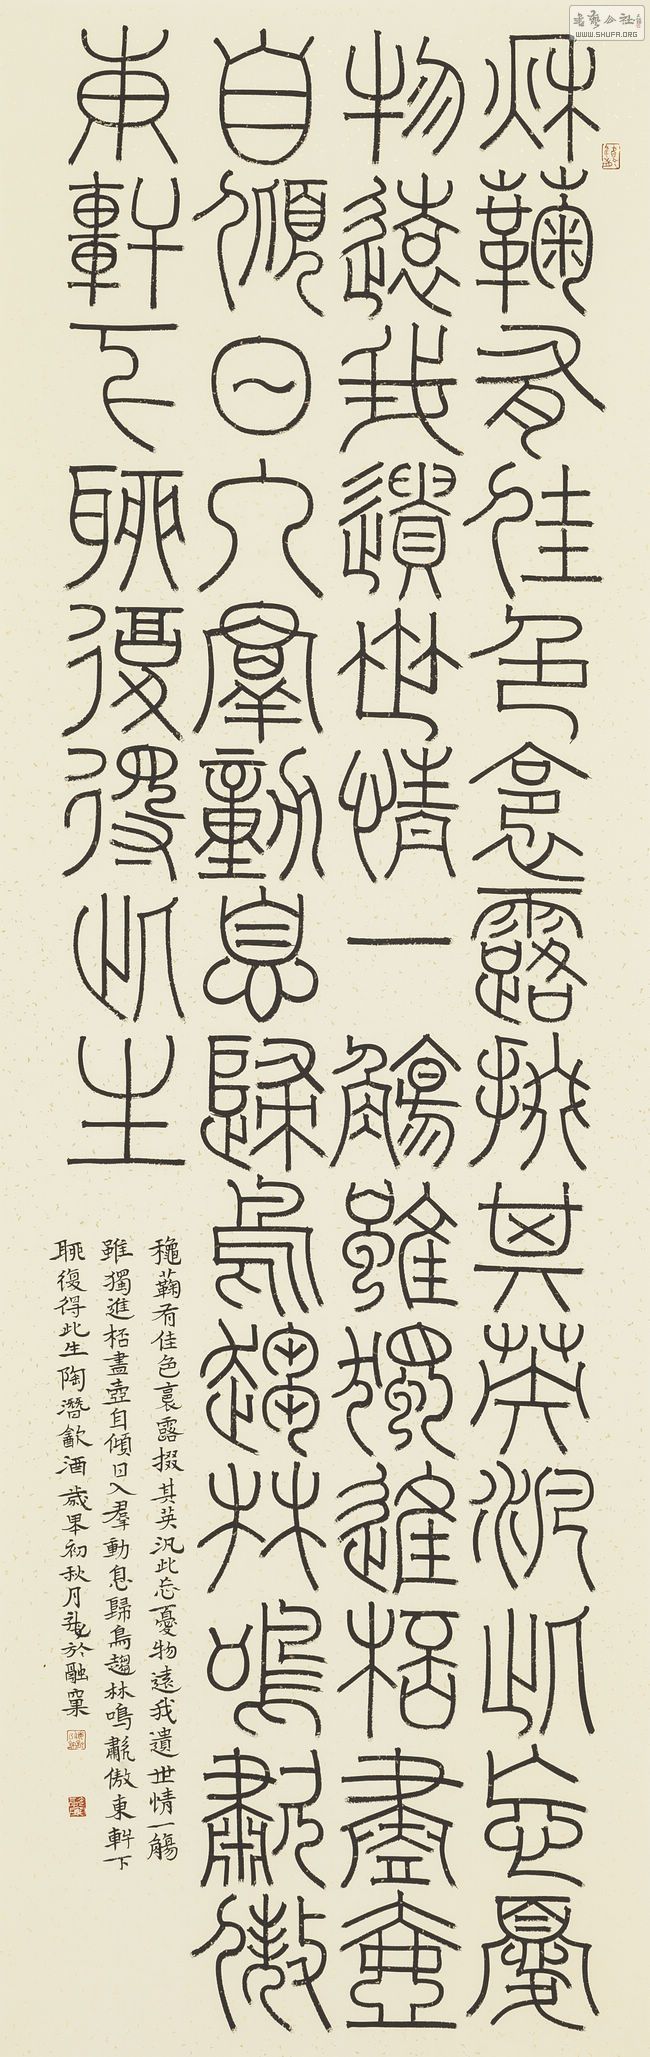 秌鞠有佳色裛露掇其英汎此忘憂
物遠我遺世情一觴雖獨進桮盡壺
自傾日入羣動息歸鳥趨林鳴歗傲
東軒下聊復得此生
龝鞠有佳色裛露掇其英汎此忘憂物遠我遺世情一觴
雖獨進桮盡壺自傾日入羣動息歸鳥趨林鳴歗傲東軒下
聊復得此生陶潛歙酒歲畢初秋月於融窠
書藝公社
www.SHUFA.ORG